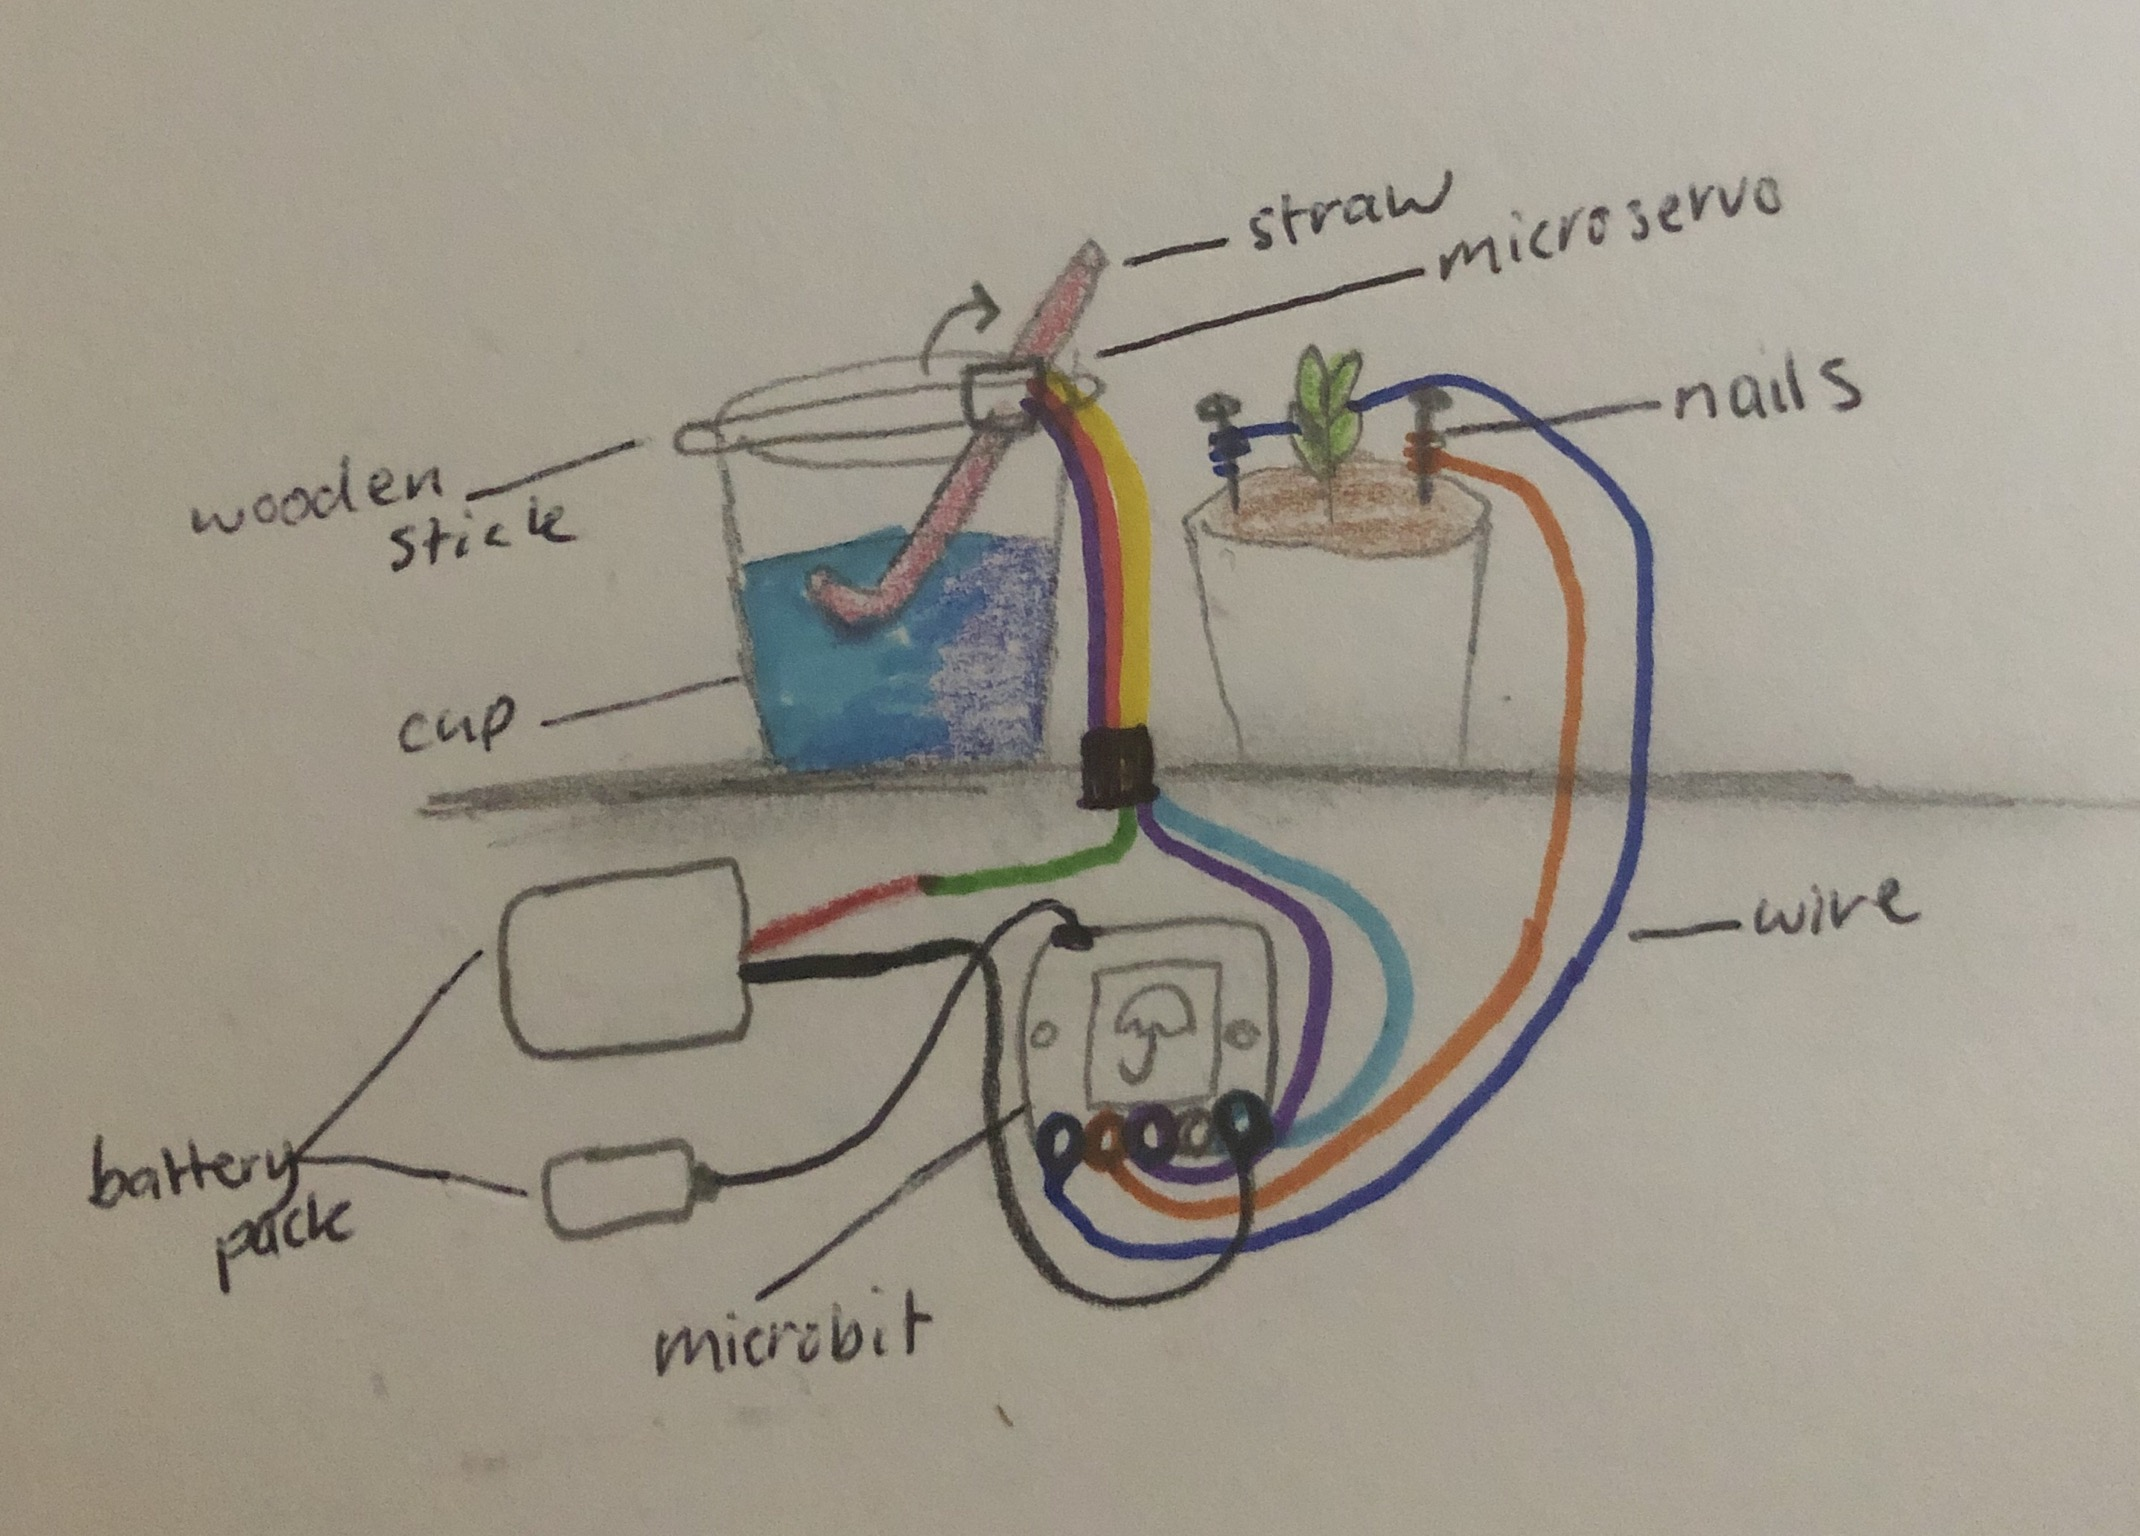 straw
microservo
nails
wooden
stick
cup
wire
battery
pack
microbit